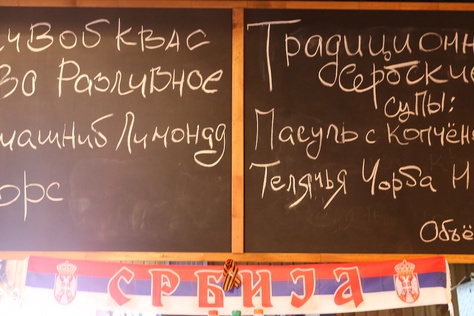 квас
во Разливное
машний Лимонад
орс
Традиционн
сербские
супы:
Пасуль с копчён
Телячья Чорба н
Объё
СРБИЈА